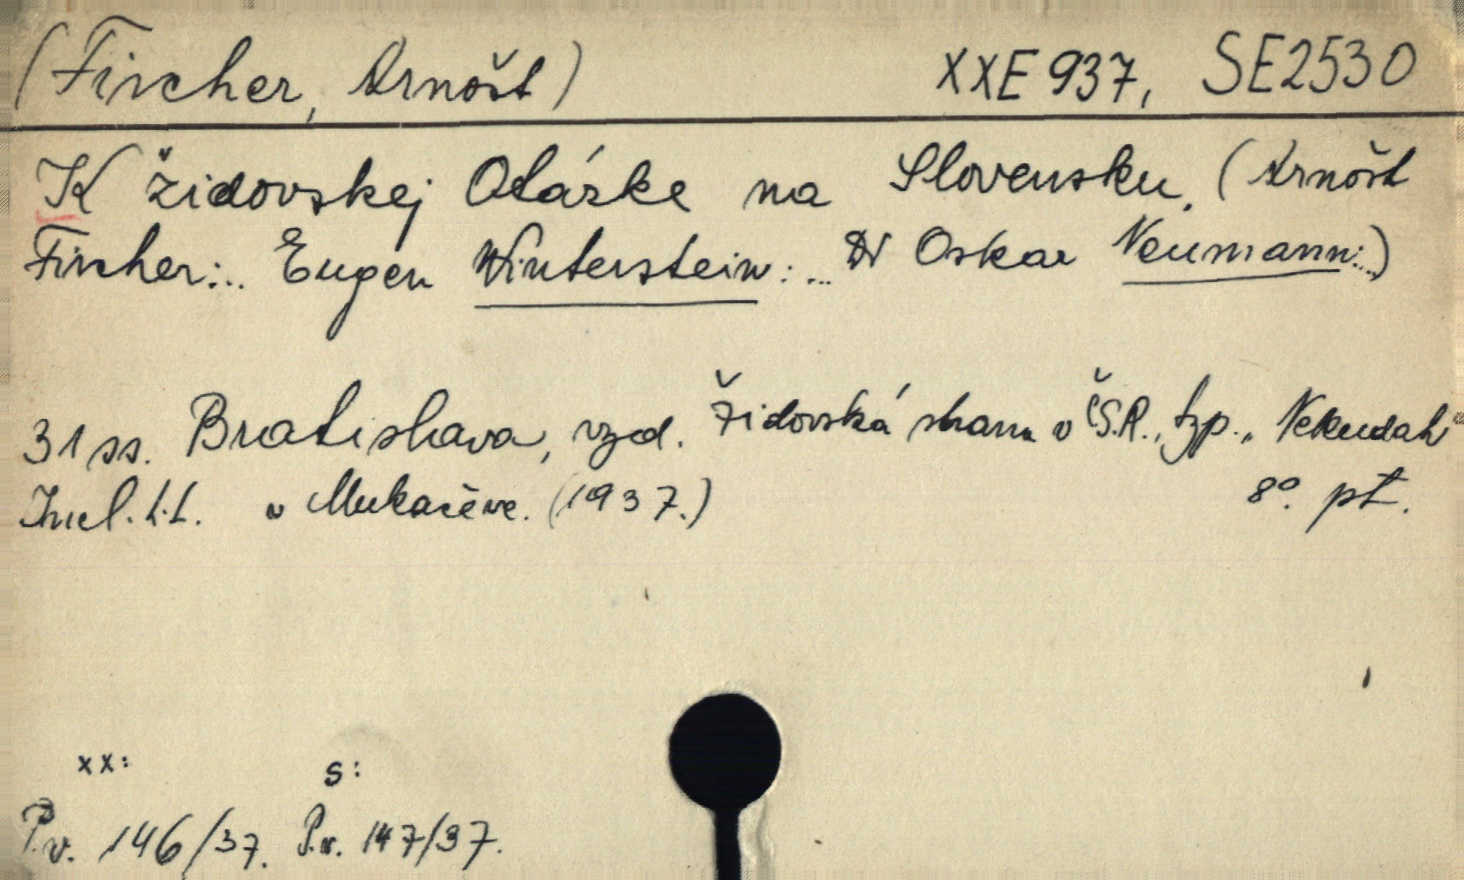 (Fischer, Arnošt) XXE 937, SE2530
K židovskej Otázke na Slovensku. (Arnošt
Fischer:.. Eugen Winterstein:... Dr Oskar Neumann:..)
31 ss. Bratislava, vyd. Židovská strana v Č.S.R., typ. „Nekudah"
v Mukačeve. (1937.) 8° pt.
xx: s:
P.v. 146/37. P.v. 147/37.